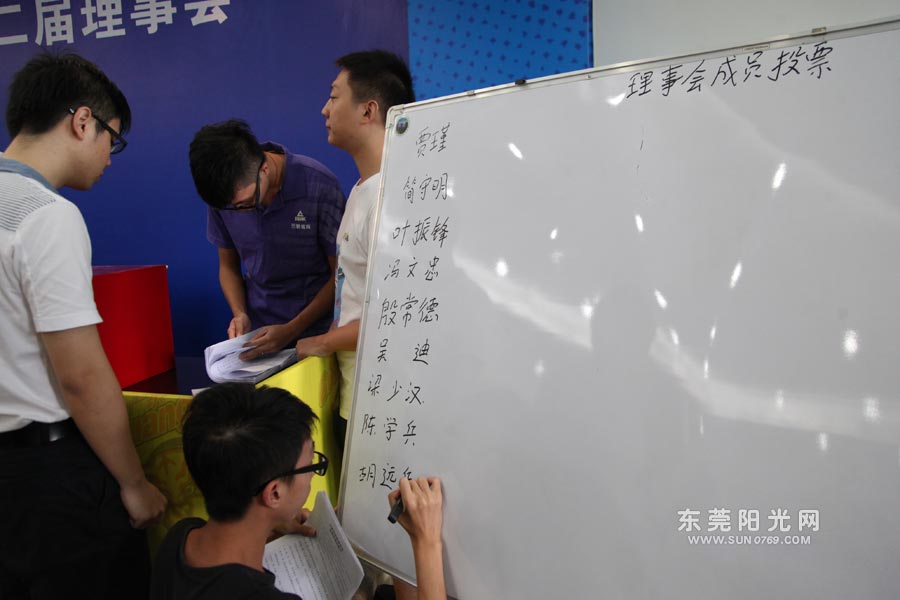 二届理事会
理事会成员投票
贾瑾
简守明
叶振锋
冯文忠
殷常德
吴 迪
梁少汉
陈学兵
胡远兵
东莞阳光网
WWW.SUN0769.COM